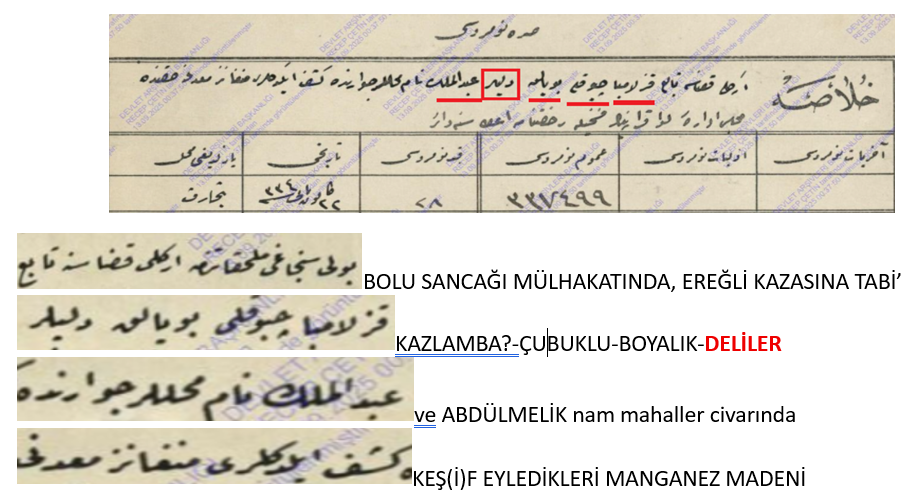 صره نومروسی
خلاصه
ارکلی قضاسنه تابع قزلامبا چبوقلی بویالق دلیلر عبدالملك نام محللر جوارنده کشف ایلدکلری منغانز معدنی حقنده
مجلس اداره
آخریات نومروسی
اولیات نومروسی
عموم نومروسی
قید نومروسی
تاریخی
یازلدیغی محل
٣٣٧٤٩٩
٢٨
٢٢ كانون ٣٣٤
تجارت
بولی سنجاغی ملحقاتندن ارکلی قضاسنه تابع
BOLU SANCAĞI MÜLHAKATINDA, EREĞLİ KAZASINA TABİ’
قزلامبا چبوقلی بویالق دلیلر
KAZLAMBA?-ÇUBUKLU-BOYALIK-DELİLER
عبدالملك نام محللر جوارنده
ve ABDÜLMELİK nam mahaller civarında
کشف ایلدکلری منغانز معدنی
KEŞ(İ)F EYLEDİKLERİ MANGANEZ MADENİ